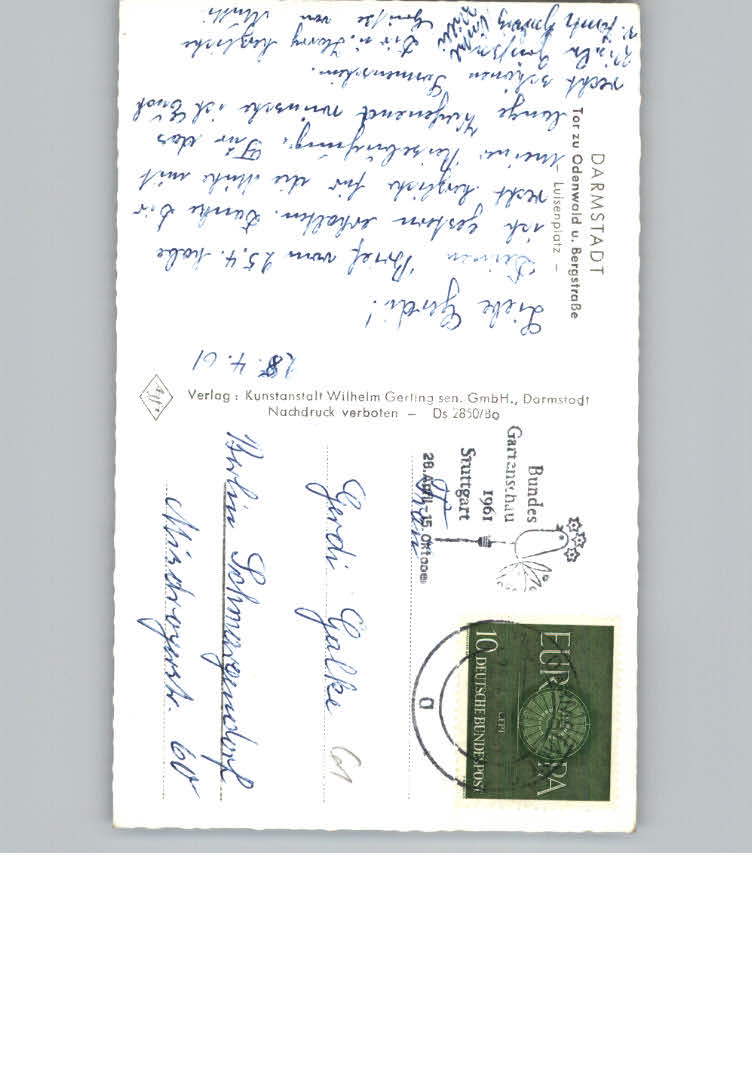 DARMSTADT
Tor zu Odenwald u. Bergstraße
– Luisenplatz –
28. 4. 61
Liebe Gerdi!
Deinen Brief vom 25.4. habe
ich gestern erhalten. Danke Dir
recht herzlich für die Mühe mit
meiner. Für das
lange Wochenend wünsche ich Euch
recht schönen Sonnenschein.
Dir u. Harry herzliche
Grüße von Mutti
Verlag : Kunstanstalt Wilhelm Gerling sen. GmbH., Darmstadt
Nachdruck verboten – Ds 2850/Bo
Bundes
Gartenschau
1961
Stuttgart
28. April - 15. Oktober
EUROPA
10 DEUTSCHE BUNDESPOST
a
Frau
Gerdi Galke
61
Berlin Schmargendorf
Misdroyerstr. 60